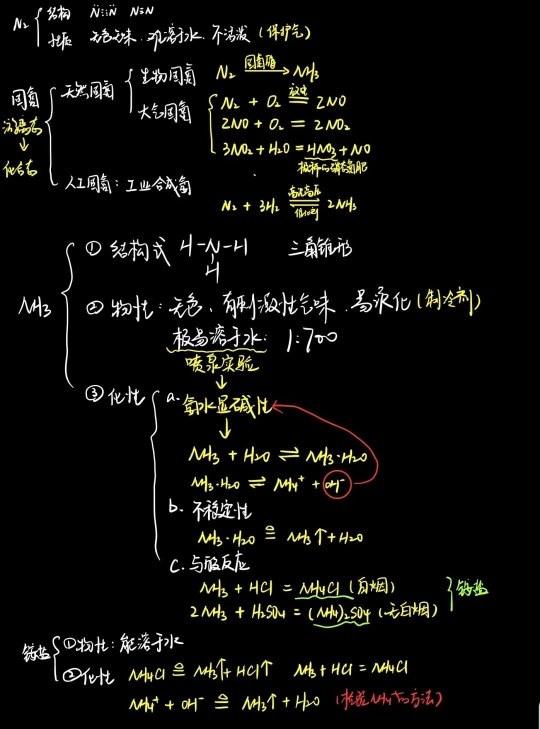 N₂ 结构 N⋮⋮N N≡N
性质 无色无味、难溶于水、不活泼 (保护气)
固氮
游离态
↓
化合态
天然固氮
生物固氮 N₂ 固氮酶→ NH₃
大气固氮
N₂ + O₂ 放电═ 2NO
2NO + O₂ = 2NO₂
3NO₂ + H₂O = 2HNO₃ + NO
人工固氮:工业合成氨
N₂ + 3H₂ 高温高压⇌催化剂 2NH₃
NH₃
① 结构式 H-N-H 三角锥形
H
② 物性:无色、有刺激性气味、易液化 (制冷剂)
极易溶于水: 1:700
喷泉实验
↓
③ 化性
a. 氨水显碱性
↓
NH₃ + H₂O ⇌ NH₃·H₂O
NH₃·H₂O ⇌ NH₄⁺ + OH⁻
b. 不稳定性
NH₃·H₂O ≜ NH₃↑ + H₂O
c. 与酸反应
NH₃ + HCl = NH₄Cl (白烟)
2NH₃ + H₂SO₄ = (NH₄)₂SO₄ (无白烟)
铵盐
铵盐
①物性:能溶于水
②化性 NH₄Cl ≜ NH₃↑ + HCl↑ NH₃ + HCl = NH₄Cl
NH₄⁺ + OH⁻ ≜ NH₃↑ + H₂O (检验NH₄⁺的方法)